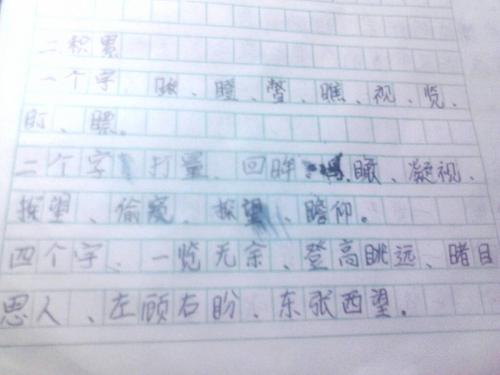 二积累
一个字、瞅、瞪、瞥、瞧、视、览、
盯、瞟。
二个字 打量、回眸、瞰、凝视、
探望、偷窥、探望、瞻仰。
四个字、一览无余、登高眺远、睹目
思人、左顾右盼、东张西望。